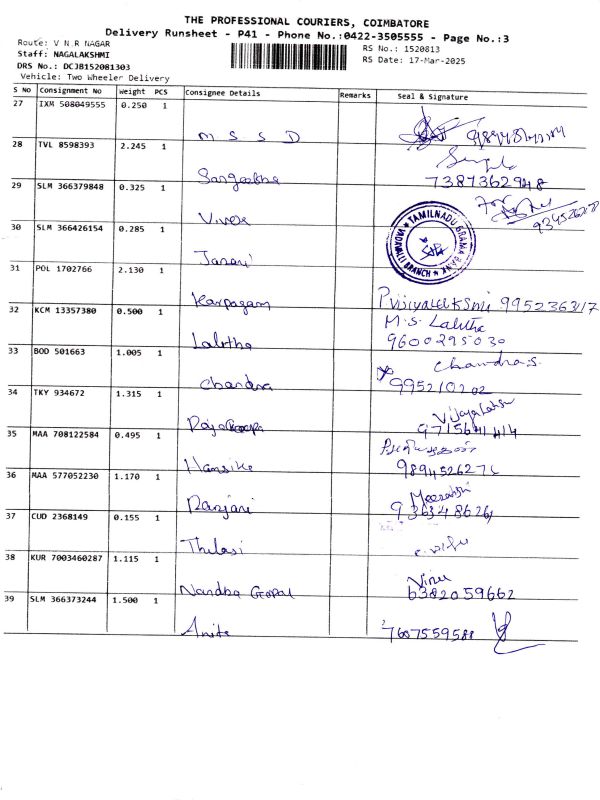 THE PROFESSIONAL COURIERS, COIMBATORE
Delivery Runsheet - P41 - Phone No.:0422-3505555 - Page No.:3
Route: V N.R NAGAR
RS No.: 1520813
Staff: NAGALAKSHMI
RS Date: 17-Mar-2025
DRS No.: DCJB152081303
Vehicle: Two Wheeler Delivery
S No Consignment No Weight PCS Consignee Details Remarks Seal & Signature
27 IXM 508049555 0.250 1
M S S D
28 TVL 8598393 2.245 1
7387362948
29 SLM 366379848 0.325 1
For
30 SLM 366426154 0.285 1
TAMILNADU GRAMA BANK
VADAVALLI BRANCH
Janani
31 POL 1702766 2.130 1
Karpagam P.Vijiyalakshmi 9952363117
32 KCM 13357380 0.500 1
M.S. Lalitha
Lalitha 9600295030
33 BOD 501663 1.005 1
Chandra.S.
Chandra 995210202
34 TKY 934672 1.315 1
35 MAA 708122584 0.495 1
Hansika
36 MAA 577052230 1.170 1
Meenakshi
Ranjani
37 CUD 2368149 0.155 1
Thulasi
38 KUR 7003460287 1.115 1
Nandha Gopal 6382059662
39 SLM 366373244 1.500 1
Anita 7607559588